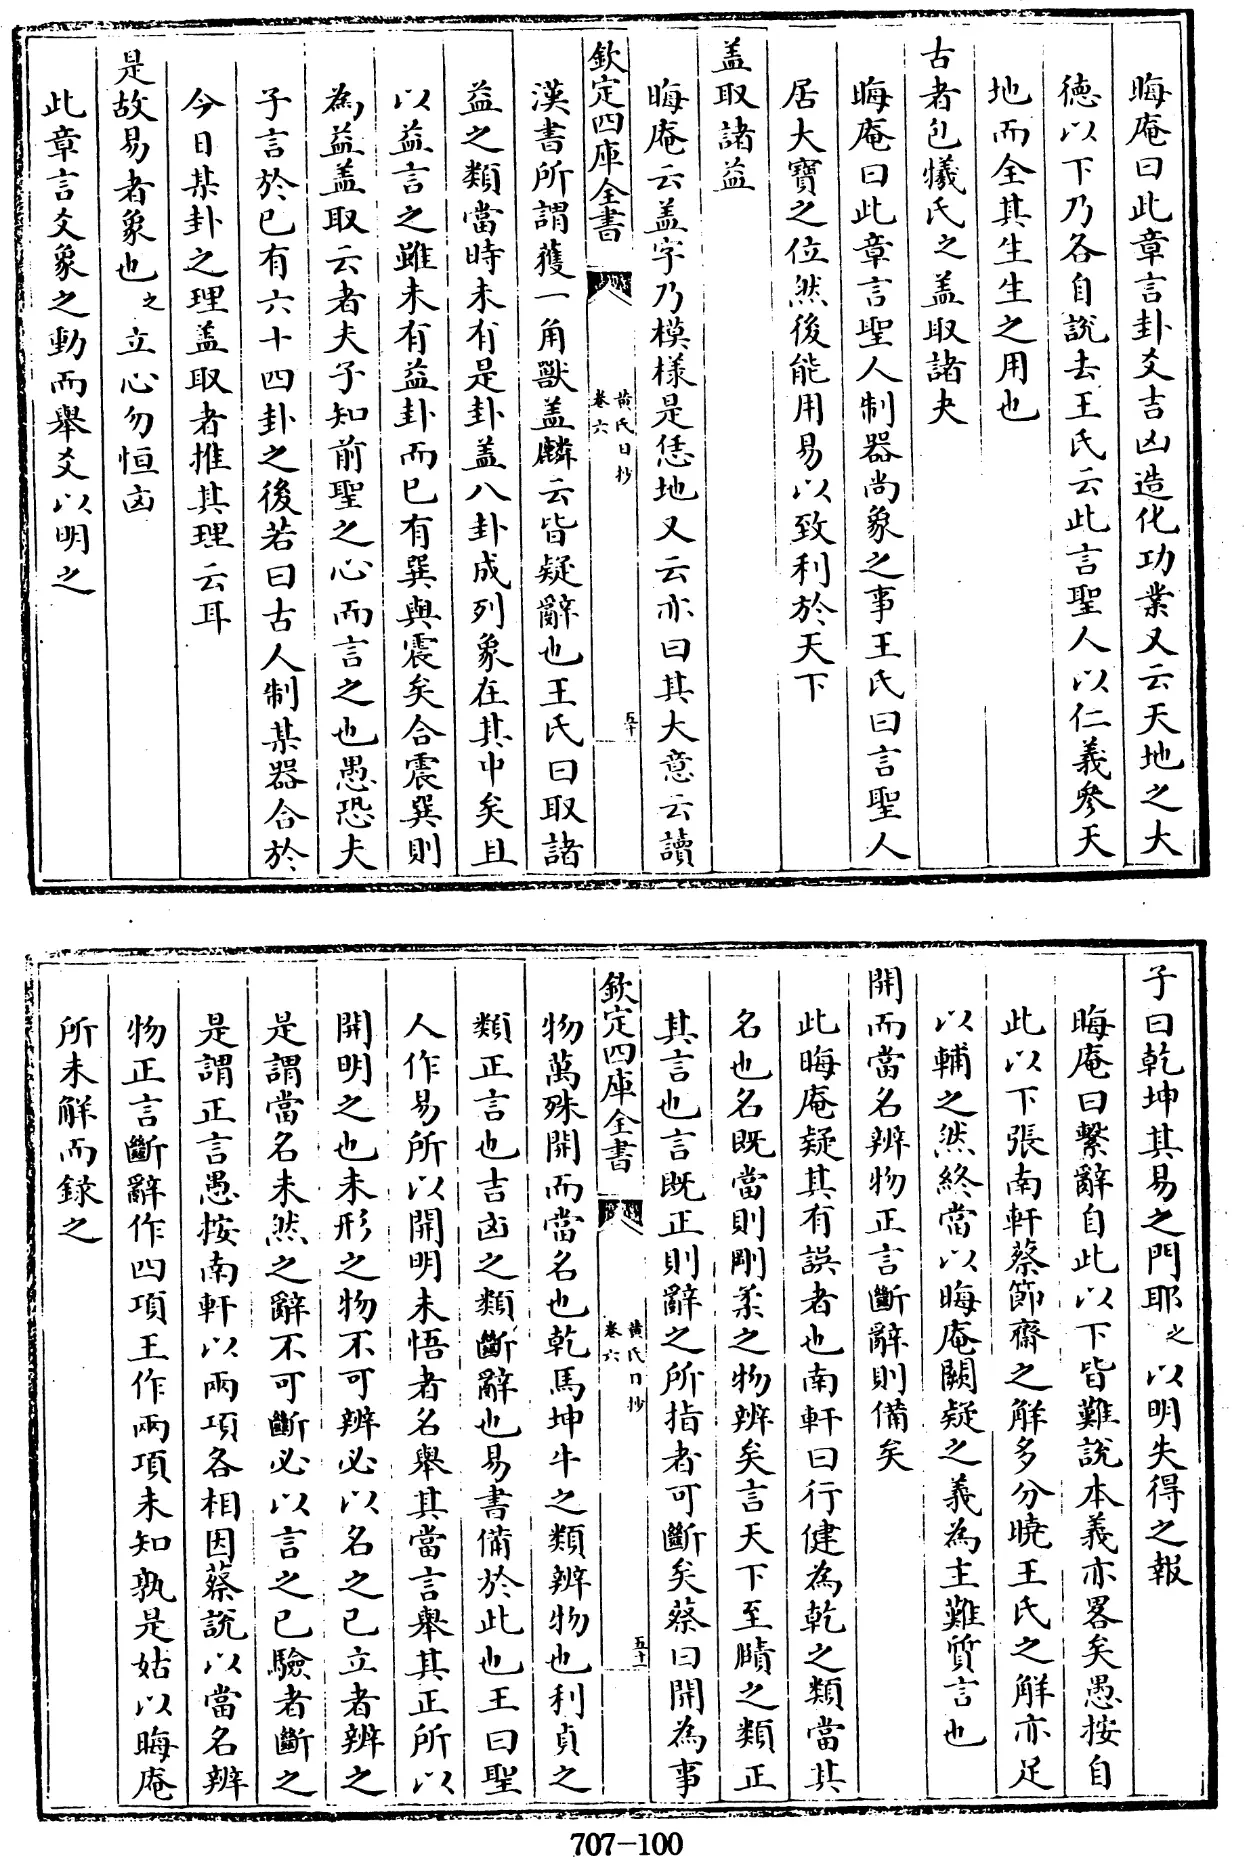 晦庵曰此章言卦爻吉凶造化功業又云天地之大
德以下乃各自說去王氏云此言聖人以仁義參天
地而全其生生之用也
古者包犧氏之蓋取諸夬
晦庵曰此章言聖人制器尚象之事王氏曰言聖人
居大寶之位然後能用易以致利於天下
盖取諸益
晦庵云盖字乃模樣是恁地又云亦曰其大意云讀
欽定四庫全書
黄氏日抄
卷六
五十
漢書所謂獲一角獸盖麟云皆疑辭也王氏曰取諸
益之類當時未有是卦盖八卦成列象在其中矣且
以益言之雖未有益卦而已有巽與震矣合震巽則
為益盖取云者夫子知前聖之心而言之也愚恐夫
子言於已有六十四卦之後若曰古人制某器合於
今日某卦之理盖取者推其理云耳
是故易者象也之立心勿恒凶
此章言爻象之動而舉爻以明之
子曰乾坤其易之門耶之以明失得之報
晦庵曰繫辭自此以下皆難說本義亦畧矣愚按自
此以下張南軒蔡節齋之解多分曉王氏之解亦足
以輔之然終當以晦庵闕疑之義為主難質言也
開而當名辨物正言斷辭則備矣
此晦庵疑其有誤者也南軒曰行健為乾之類當其
名也名既當則剛柔之物辨矣言天下至賾之類正
其言也言既正則辭之所指者可斷矣蔡曰開為事
欽定四庫全書
黄氏日抄
卷六
五十一
物萬殊開而當名也乾馬坤牛之類辨物也利貞之
類正言也吉凶之類斷辭也易書備於此也王曰聖
人作易所以開明未悟者名舉其當言舉其正所以
開明之也未形之物不可辨必以名之已立者辨之
是謂當名未然之辭不可斷必以言之已驗者斷之
是謂正言愚按南軒以兩項各相因蔡說以當名辨
物正言斷辭作四項王作兩項未知孰是姑以晦庵
所未解而錄之
707-100